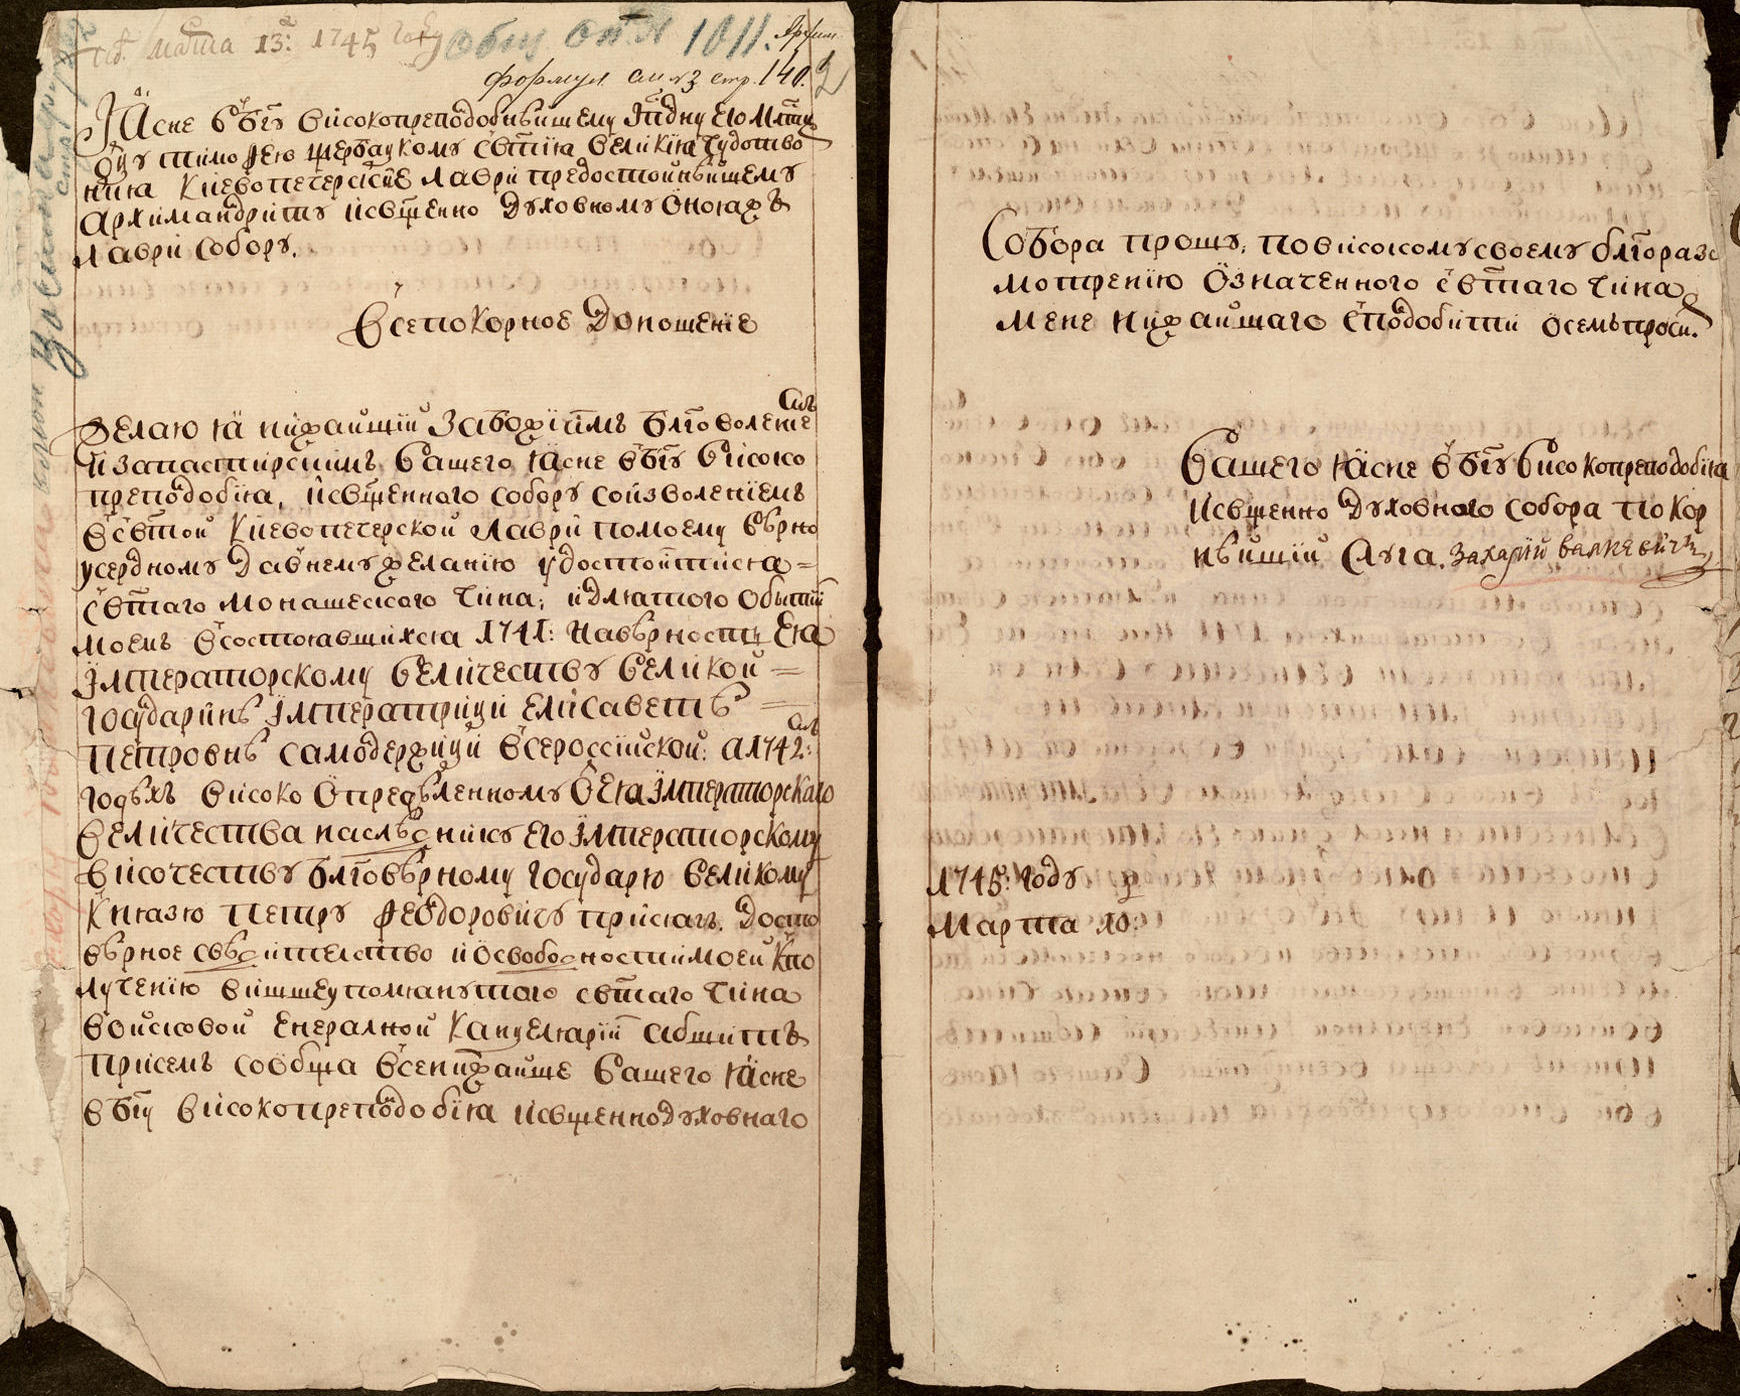 марта 13: 1745 году
общ оп. № 1011. Архим.
формул сп. из стр. 140. 2
Ясне въ Бгу високопреподобнѣйшему Гпдну Его Млсти
Оцу Тимоѳею Щербацкому свтїя великїя Чудотво
нїя Кїевопечерскїѣ Лаври предостойнѣйшему
Архимандриту и свщенно духовному онояжъ
Лаври Собору.
Всепокорное Доношенїе
Желаю я нижайшїй за Божїимъ блговоленїе
и за пастирскимъ Вашего Ясне въ Бгу високо
преподобїя, и свщенного собору соизволенїемъ
в свтой Кїевопечерской Лаври по моему вѣрно
усердному давнему желанїю удостоитися
свтаго монашеского чина; и для того о бытїи
моемъ в состоявшихся 1741: на вѣрность Ея
Імператорскому Величеству Великой
Государинѣ Імператрици Елисаветѣ
Петровнѣ самодержици Всероссїйской: а 1742:
годѣхъ високо опредѣленному В Ея Імператорскаго
Величества наслѣднику его Імператорскому
височеству блговѣрному Государю Великому
Князю Петру Ѳеодоровичу присягъ. Досто
вѣрное свѣдителство и о свободности моей к по
лученїю вишшеупомянутого свтаго чина
войсковой Енералной Канцелярїи абшитъ
при семъ сообща всенижайше Вашего Ясне
в Бгу високопреподобїя и свщеннодуховнаго
Собора прошу, по високому своему блгоразс
мотренїю означенного свтаго чина
мене нижайшаго сподобити о семъ проси.
Вашего Ясне в Бгу Високопреподобїя
и свщенно Духовного Собора покор
нѣйшїй слуга. Захарїй Валкевичъ
1745: Году
Марта 10: